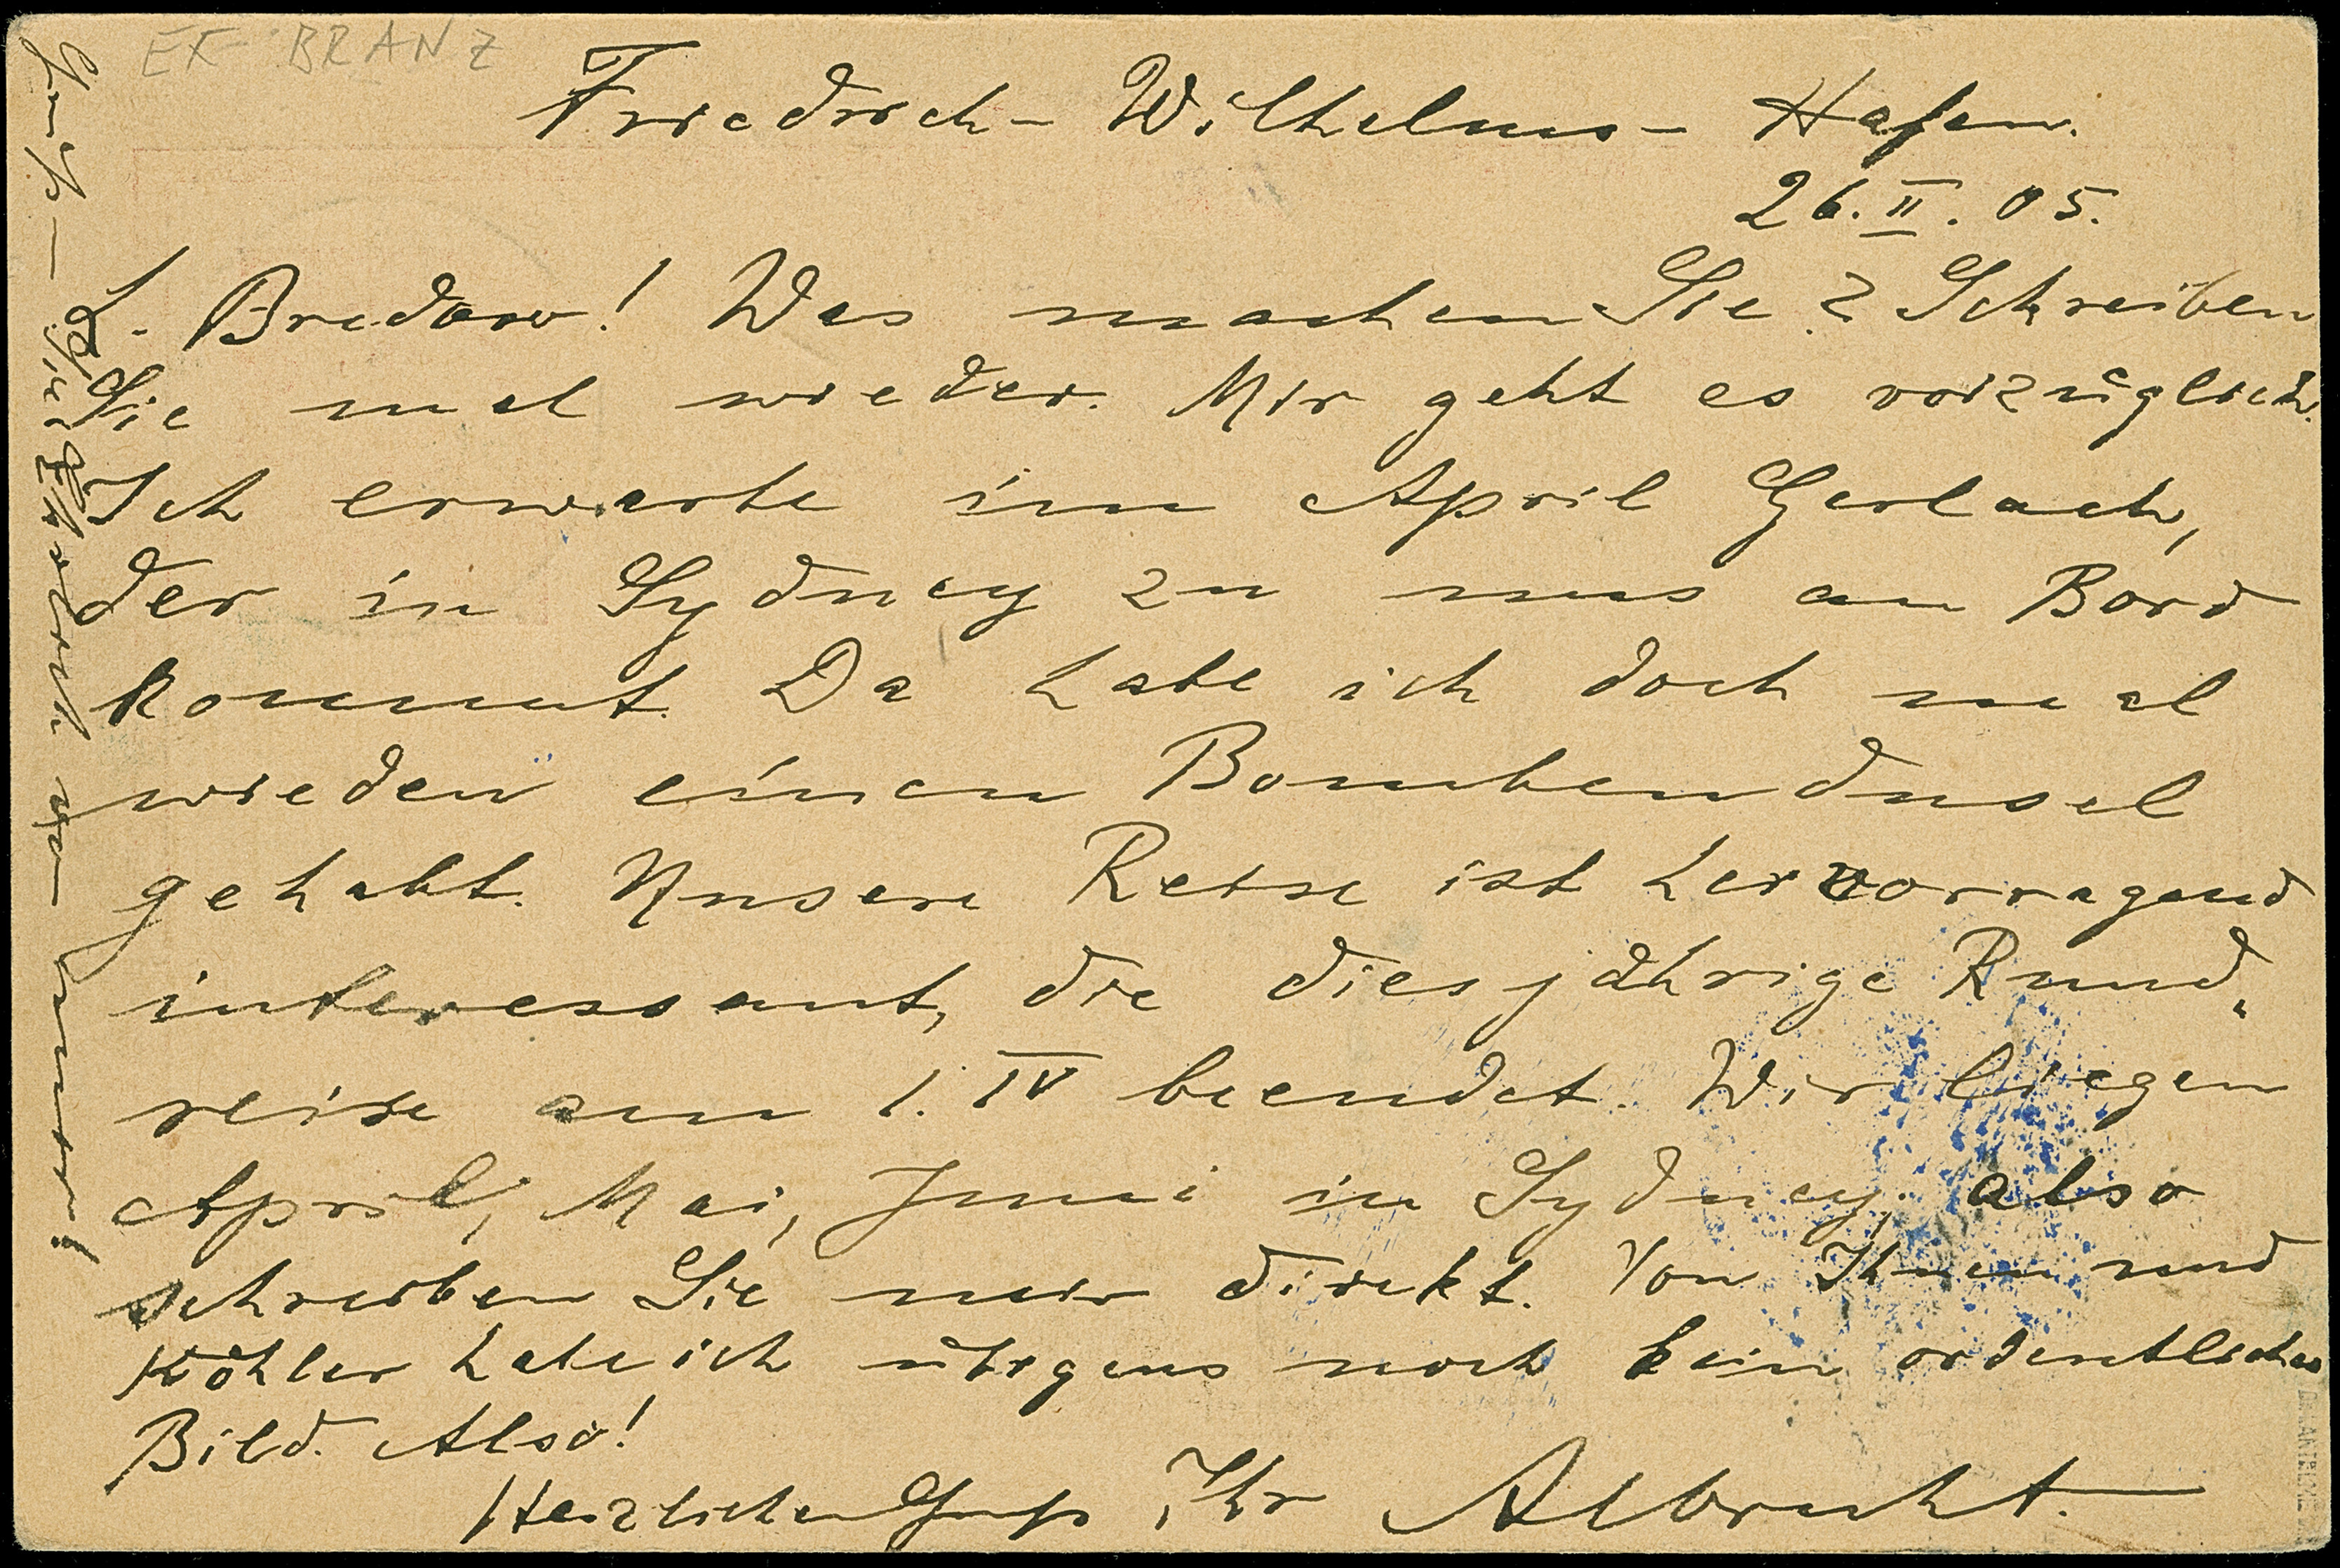 EX BRANZ
Friedrich-Wilhelms-Hafen.
26.II.05.
L. Bredow! Was machen Sie? Schreiben
Sie mal wieder. Mir geht es vorzüglich.
Ich erwarte im April Gerlach,
der in Sydney zu uns an Bord
kommt. Da habe ich doch mal
wieder einen Bombendusel
gehabt. Unsere Reise ist hervorragend
interessant, die diesjährige Rund-
reise am 1. IV beendet. Wir liegen
April, Mai, Juni in Sydney, also
schreiben Sie mir direkt. Von Ihnen und
Köhler habe ich übrigens noch kein ordentliches
Bild. Also!
Herzlichen Gruß Ihr Albrecht.
Gruß